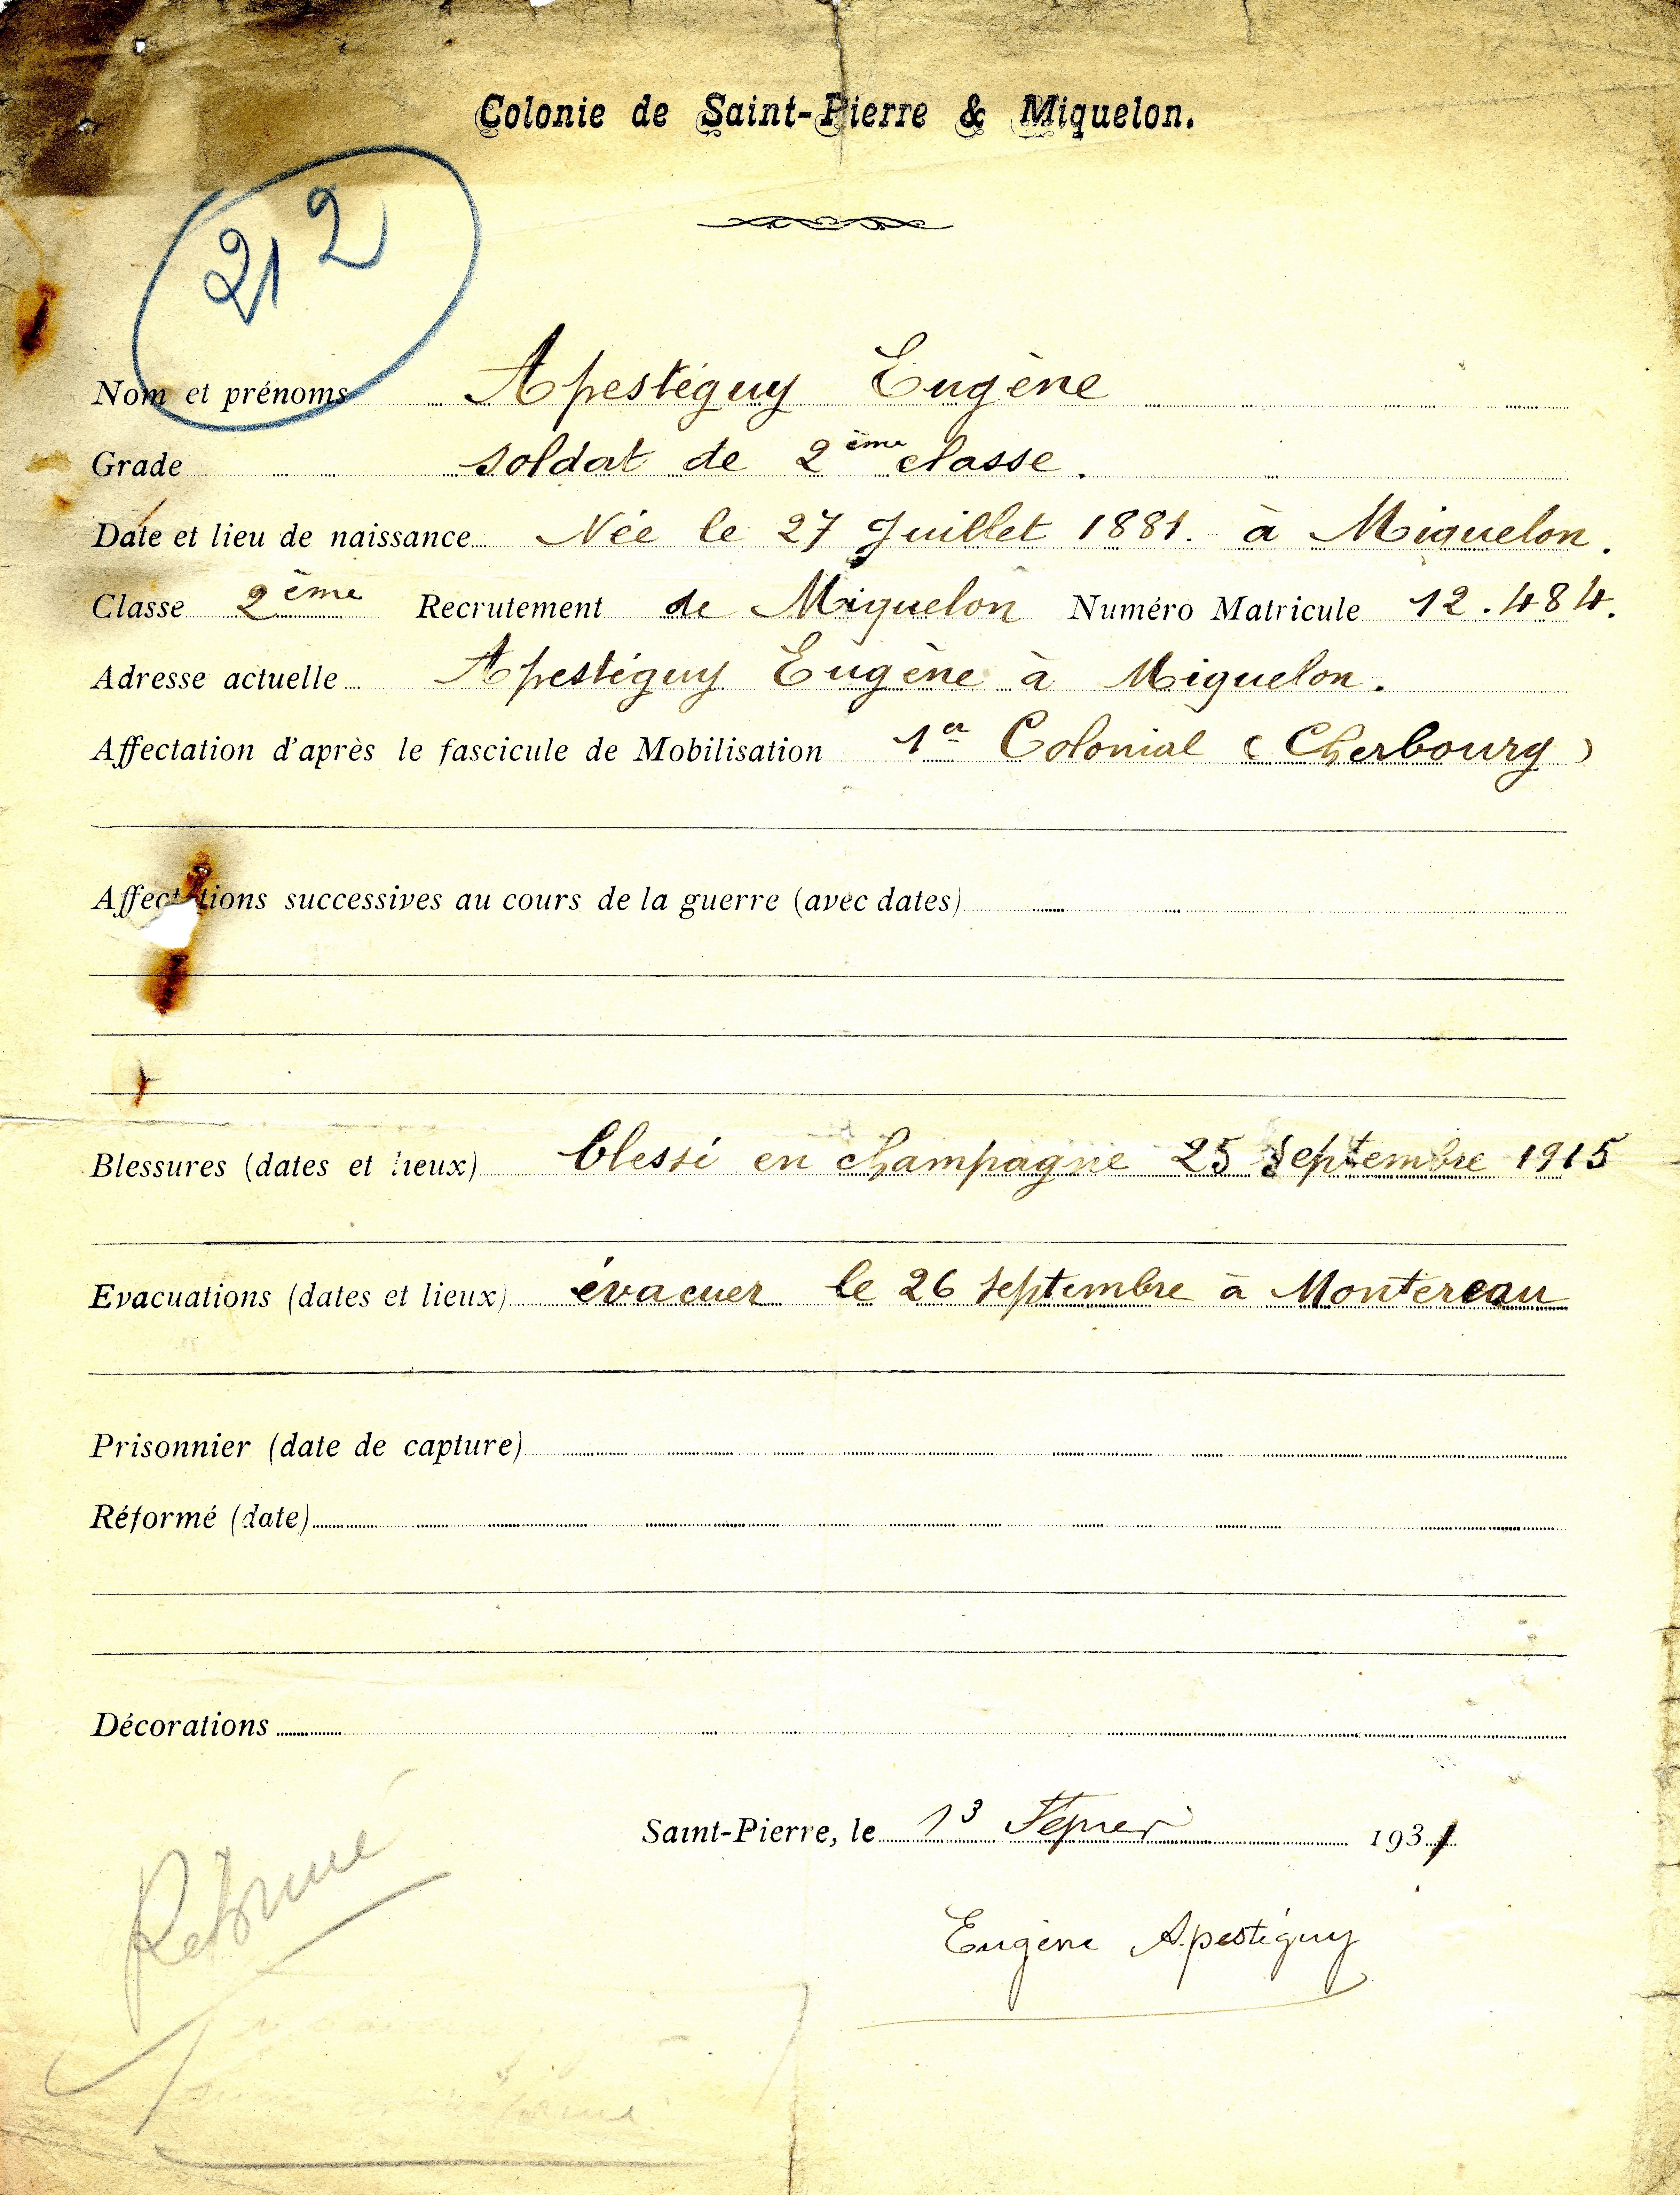 Colonie de Saint-Pierre & Miquelon.
212
Nom et prénoms Apestéguy Eugène
Grade soldat de 2ème classe.
Date et lieu de naissance Née le 27 Juillet 1881. à Miquelon.
Classe 2ème Recrutement de Miquelon Numéro Matricule 12.484.
Adresse actuelle Apestéguy Eugène à Miquelon.
Affectation d'après le fascicule de Mobilisation 1er Colonial (Cherbourg)
Affectations successives au cours de la guerre (avec dates)
Blessures (dates et lieux) blessé en champagne 25 septembre 1915
Evacuations (dates et lieux) évacuer le 26 septembre à Montereau
Prisonnier (date de capture)
Réformé (date)
Décorations
Saint-Pierre, le 13 1931
Eugène Apestéguy
Retourné